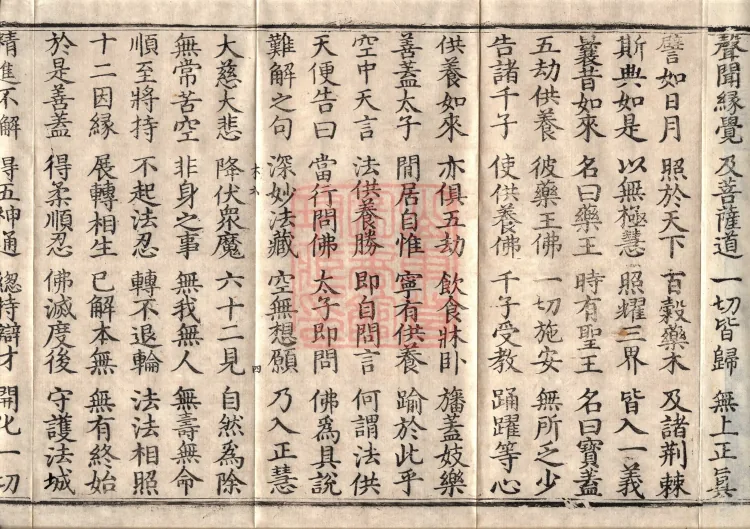 聲聞緣覺 及菩薩道 一切皆歸 無上正真
譬如日月 照於天下 百穀藥木 及諸荊棘
斯典如是 以無極慧 照耀三界 皆入一義
曩昔如來 名曰藥王 時有聖王 名曰寶蓋
五劫供養 彼藥王佛 一切施安 無所乏少
告諸千子 使供養佛 千子受教 踊躍等心
供養如來 亦俱五劫 飲食牀卧 旛蓋妓樂
善蓋太子 閒居自惟 寧有供養 踰於此乎
空中天言 法供養勝 即自問言 何謂法供
天便告曰 當行問佛 太子即問 佛為具說
難解之句 深妙法藏 空無想願 乃入正慧
四
大慈大悲 降伏眾魔 六十二見 自然為除
無常苦空 非身之事 無我無人 無壽無命
順至將持 不起法忍 轉不退輪 法法相照
十二因緣 展轉相生 已解本無 無有終始
於是善蓋 得柔順忍 佛滅度後 守護法城
精進不懈 得五神通 總持辯才 開化一切